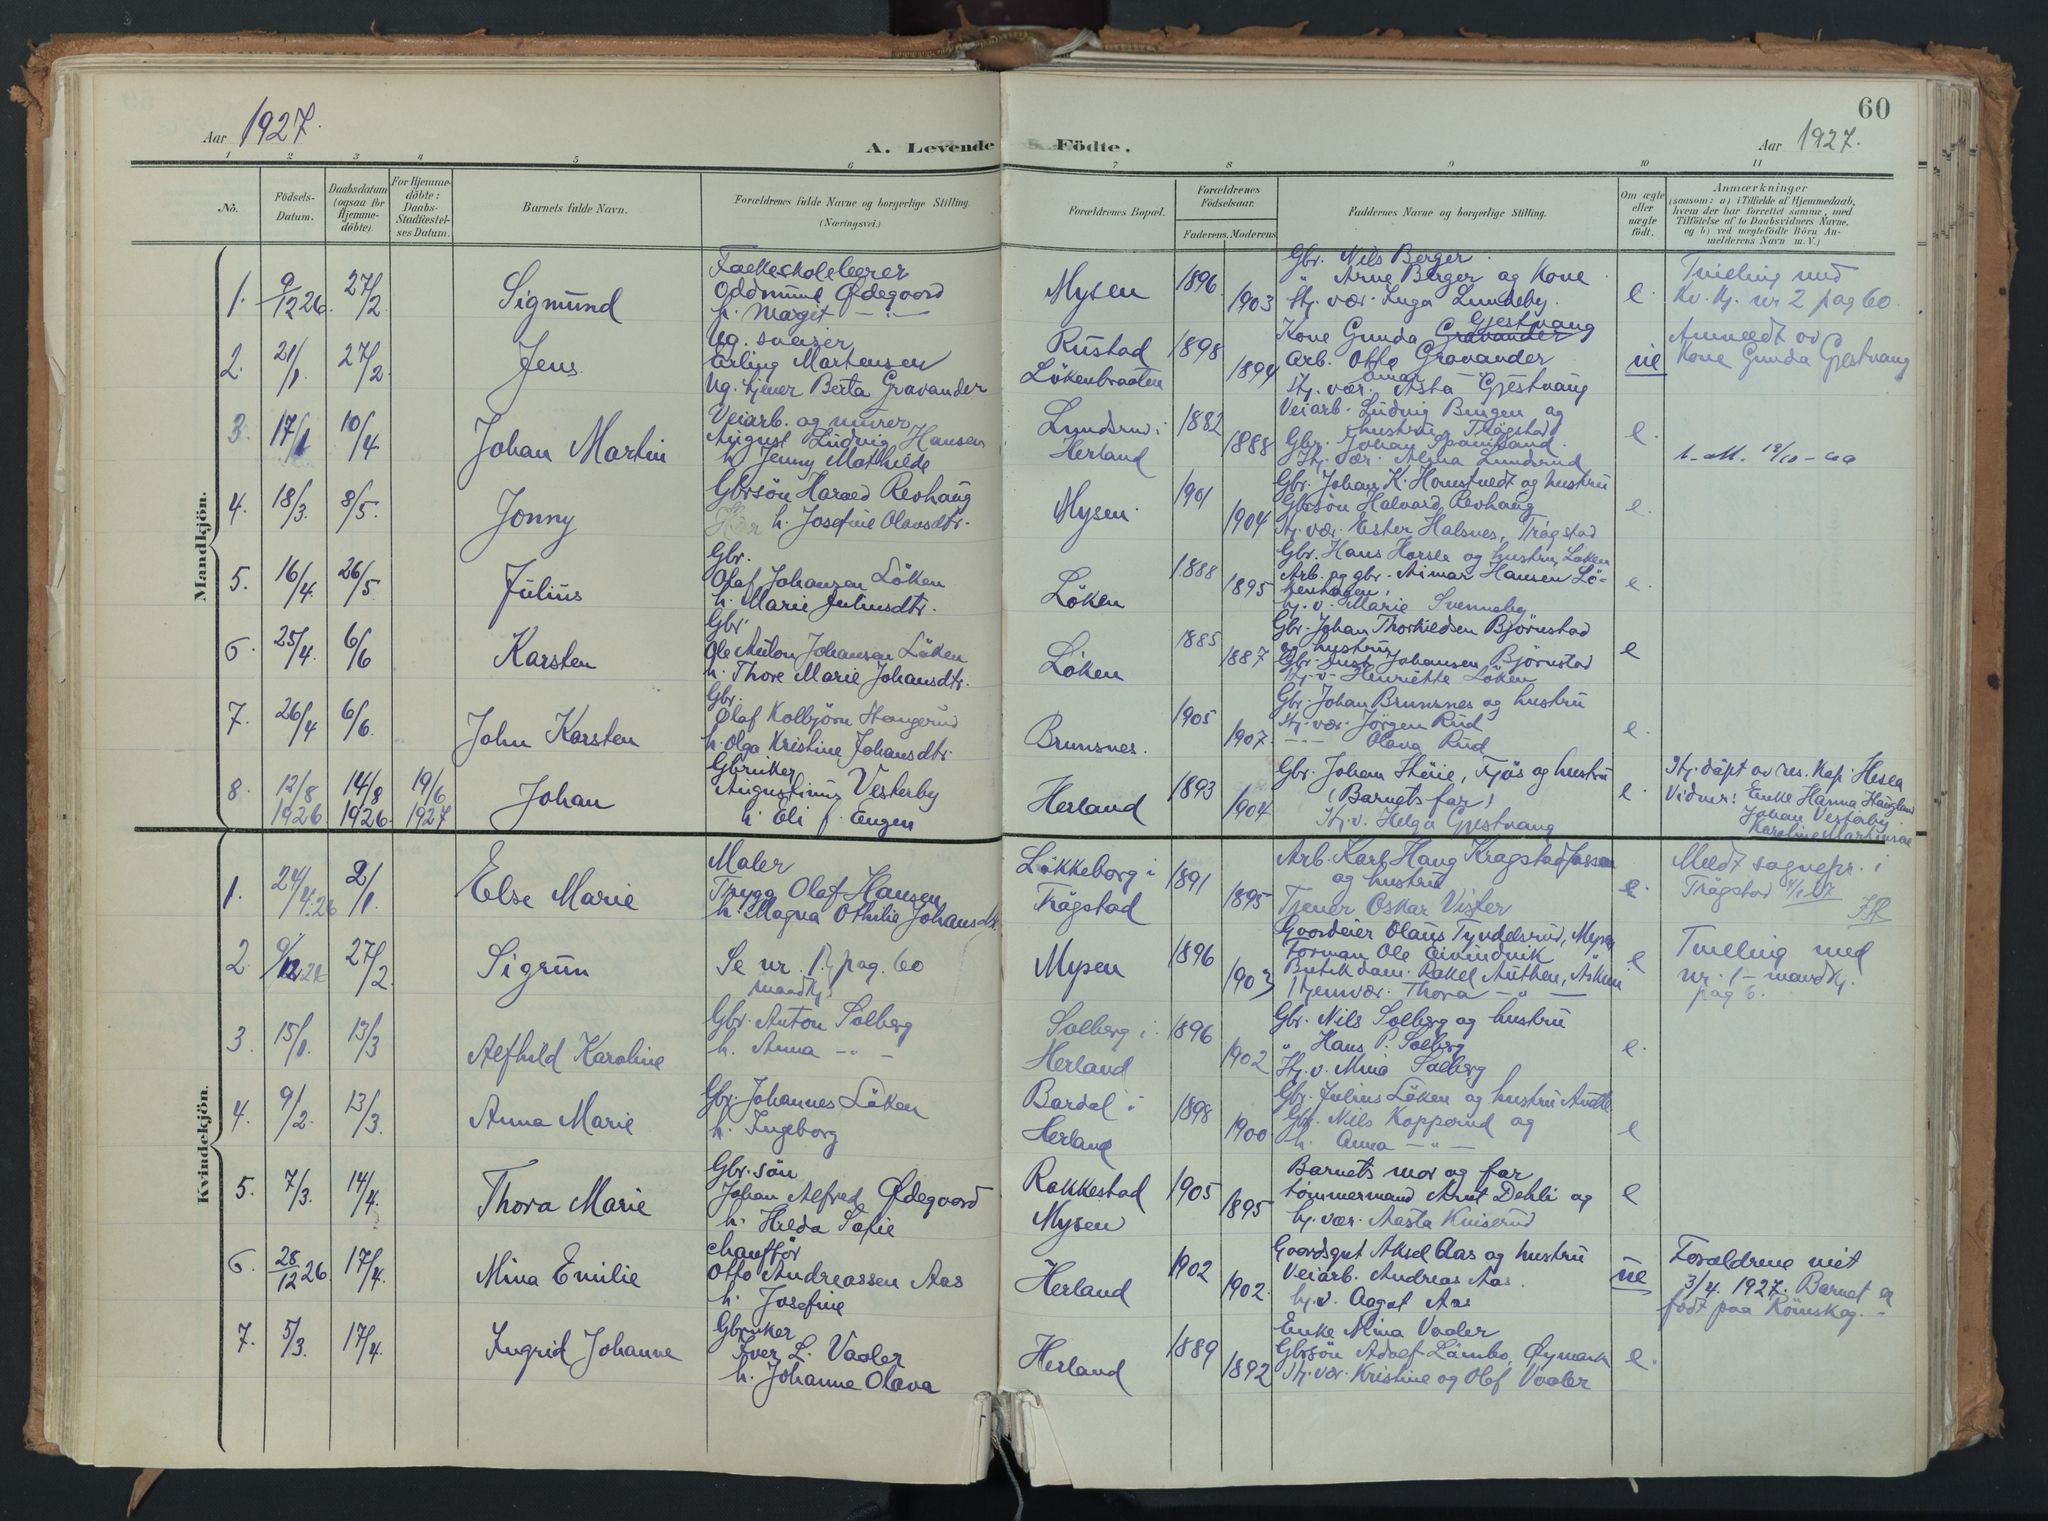 60
Aar 1927.
A. Levende Födte.
Aar 1927.
1 2 3 4 5 6 7 8 9 10 11
No.
Födsels-Datum.
Daabsdatum (ogsaa for Hjemme-döbte).
For Hjemme-döbte: Daabs-Stadfæstel-ses Datum.
Barnets fulde Navn.
Forældrenes fulde Navne og borgerlige Stilling. (Næringsvei.)
Forældrenes Bopæl.
Forældrenes Födselsaar.
Faderens. Moderens.
Faddernes Navne og borgerlige Stilling.
Om ægte eller uægte födt.
Anmærkninger
(saasom: a) i Tilfælde af Hjemmedaab, hvem der har forrettet samme, med Tilföielse af to Daabsvidners Navne, og b) ved uægtefödte Börn An-melderens Navn m. V.)
Mandkjön.
1. 9/12 26. 27/2 Sigmund
Folkeskolelærer
Oddmund Ødegaard
h. Margit -:-
Mysen 1896 1903
Gbr. Nils Berger.
" Arne Berger og Kone
Hj. vær. Inga Lundeby.
e.
Tvilling med
Kv. Kj. nr 2 pag 60.
2. 21/1 27/2. Jens.
Ug. sveiser
Erling Martensen
Ug. tjener Berta Gravander
Rustad
Lökenbraaten
1898 1894
Gjestvang
Kone Gunda Gravander
Arb. Otto Gravander
Hj. vær. Asta Gjestvang
ue
Anmeldt av
Kone Gunda Gjestvang
3. 17/1 10/4. Johan Martin
Veiarb. og murer
August Ludvig Hansen
h. Jenny Mathilde
Lundsrud i
Herland
1882 1888
Veiarb. Ludvig Bungen og
hustru, Trögstad
Gbr. Johan
Hj. vær. Alma Lundsrud
e.
4. 18/3. 8/5. Jonny
Gbrsön Harald Revhaug
h. Josefine Olavsdtr.
Mysen. 1901 1904
Gbr. Johan K. Homstvedt og hustru
Gbrsön Halvard Revhaug
Hj. vær. Ester Halsnes, Trögstad
e.
5. 16/4. 26/5. Julius
Gbr.
Olaf Johansen Löken
h. Marie Juliusdtr.
Löken 1888 1895
Gbr. Hans Horsle og hustru, Löken
Arb. og gbr. Aimar Hansen Lö-
kenhagen,
hj. v. Marie Svenneby
e
6. 25/4. 6/6 Karsten
Gbr.
Ole Anton Johansen Löken
h. Thore Marie Johansdtr.
Löken 1885 1887
Gbr. Johan Thorkildsen Björnstad
og hustru
Gbr. Just Johansen Björnstad
Hj. v. Henriette Löken
e
7. 26/4 6/6. John Karsten
Gbr.
Olaf Kolbjörn Stangerud
h. Olga Kristine Johansdtr.
Brunsnes. 1905 1907.
Gbr. Johan Brunsnes og hustru
Hj. vær. Jörgen Rud
--- Olava Rud
e.
8. 12/8 1926 14/8 1926 19/6 1927 Johan
Gbruker
Augustinus Vesterby
h. Eli f. Engen
Herland 1893 1904
Gbr. Johan Stöie, Fjös og hustru
(Barnets far)
Hj. v. Helga Gjestvang
e.
Hj. döpt av res. Kap. Hesla
Vidner: Enke Hanna Haugland
Johan Vesterby
Karoline Martinsen
Kvindekjön.
1. 24/4. 26 2/1. Else Marie
Maler
Trygg Olaf Hansen
h. Magna Othilie Johansdtr.
Lökkeborg i
Trögstad
1891 1895
Arb. Karl Haug Kragstadfossen
og hustru
Tjener Oskar Vister
e.
Meldt sognepr. i
Trögstad
2. 9/12 26 27/2 Sigrun
Se nr. 1, pag. 60
mandkj.
Mysen 1896 1903
Gaardeier Olaus Tyndelsrud, Mysen
Forman Ole Eivindvik
Butikdam. Rakel Anthen, Askim
Hjemvær. Thora - " -
e
Tvilling med
nr. 1 - mandkj.
pag 6.
3. 15/1. 13/3 Alfhild Karoline
Gbr. Anton Solberg
h. Anna - " -
Solberg i
Herland
1896 1902
Gbr. Nils Solberg og hustru
" Hans P. Solberg
Hj. v. Mina Solberg
e.
4. 9/2. 13/3. Anna Marie
Gbr. Johannes Löken
h. Ingeborg
Bardal i
Herland
1898 1900
Gbr. Julius Löken og hustru
Gbr. Nils Kopperud og
h. Anna - " -
e
5. 7/3. 14/4. Thora Marie
Gbr. sön
Johan Alfred Ødegaard
h. Hilda Sofie
Rakkestad
Mysen
1905 1895
Barnets mor og far
tömmermand Arnt Dehli og
hj. vær. Aasta Kniserud
e
6. 28/12 26 17/4. Mina Emilie
chaufför
Otto Andreassen Aas
h. Josefine
Herland 1902 1902.
Gaardsgut Aksel Aas og hustru
Veiarb. Andreas Aas.
hj. v. Aagot Aas
ue
Foraldrene viet
3/4. 1927. Barnet er
födt paa Römskog. -
7. 5/3. 17/4. Ingrid Johanne
Gbruker
Iver L. Vaaler
h. Johanne Olava
Herland 1889 1892
Enke Mina Vaaler
Gbrsön Adolf Lambo, Øymark
Hj. vær. Kristine og Olaf Vaaler
e.